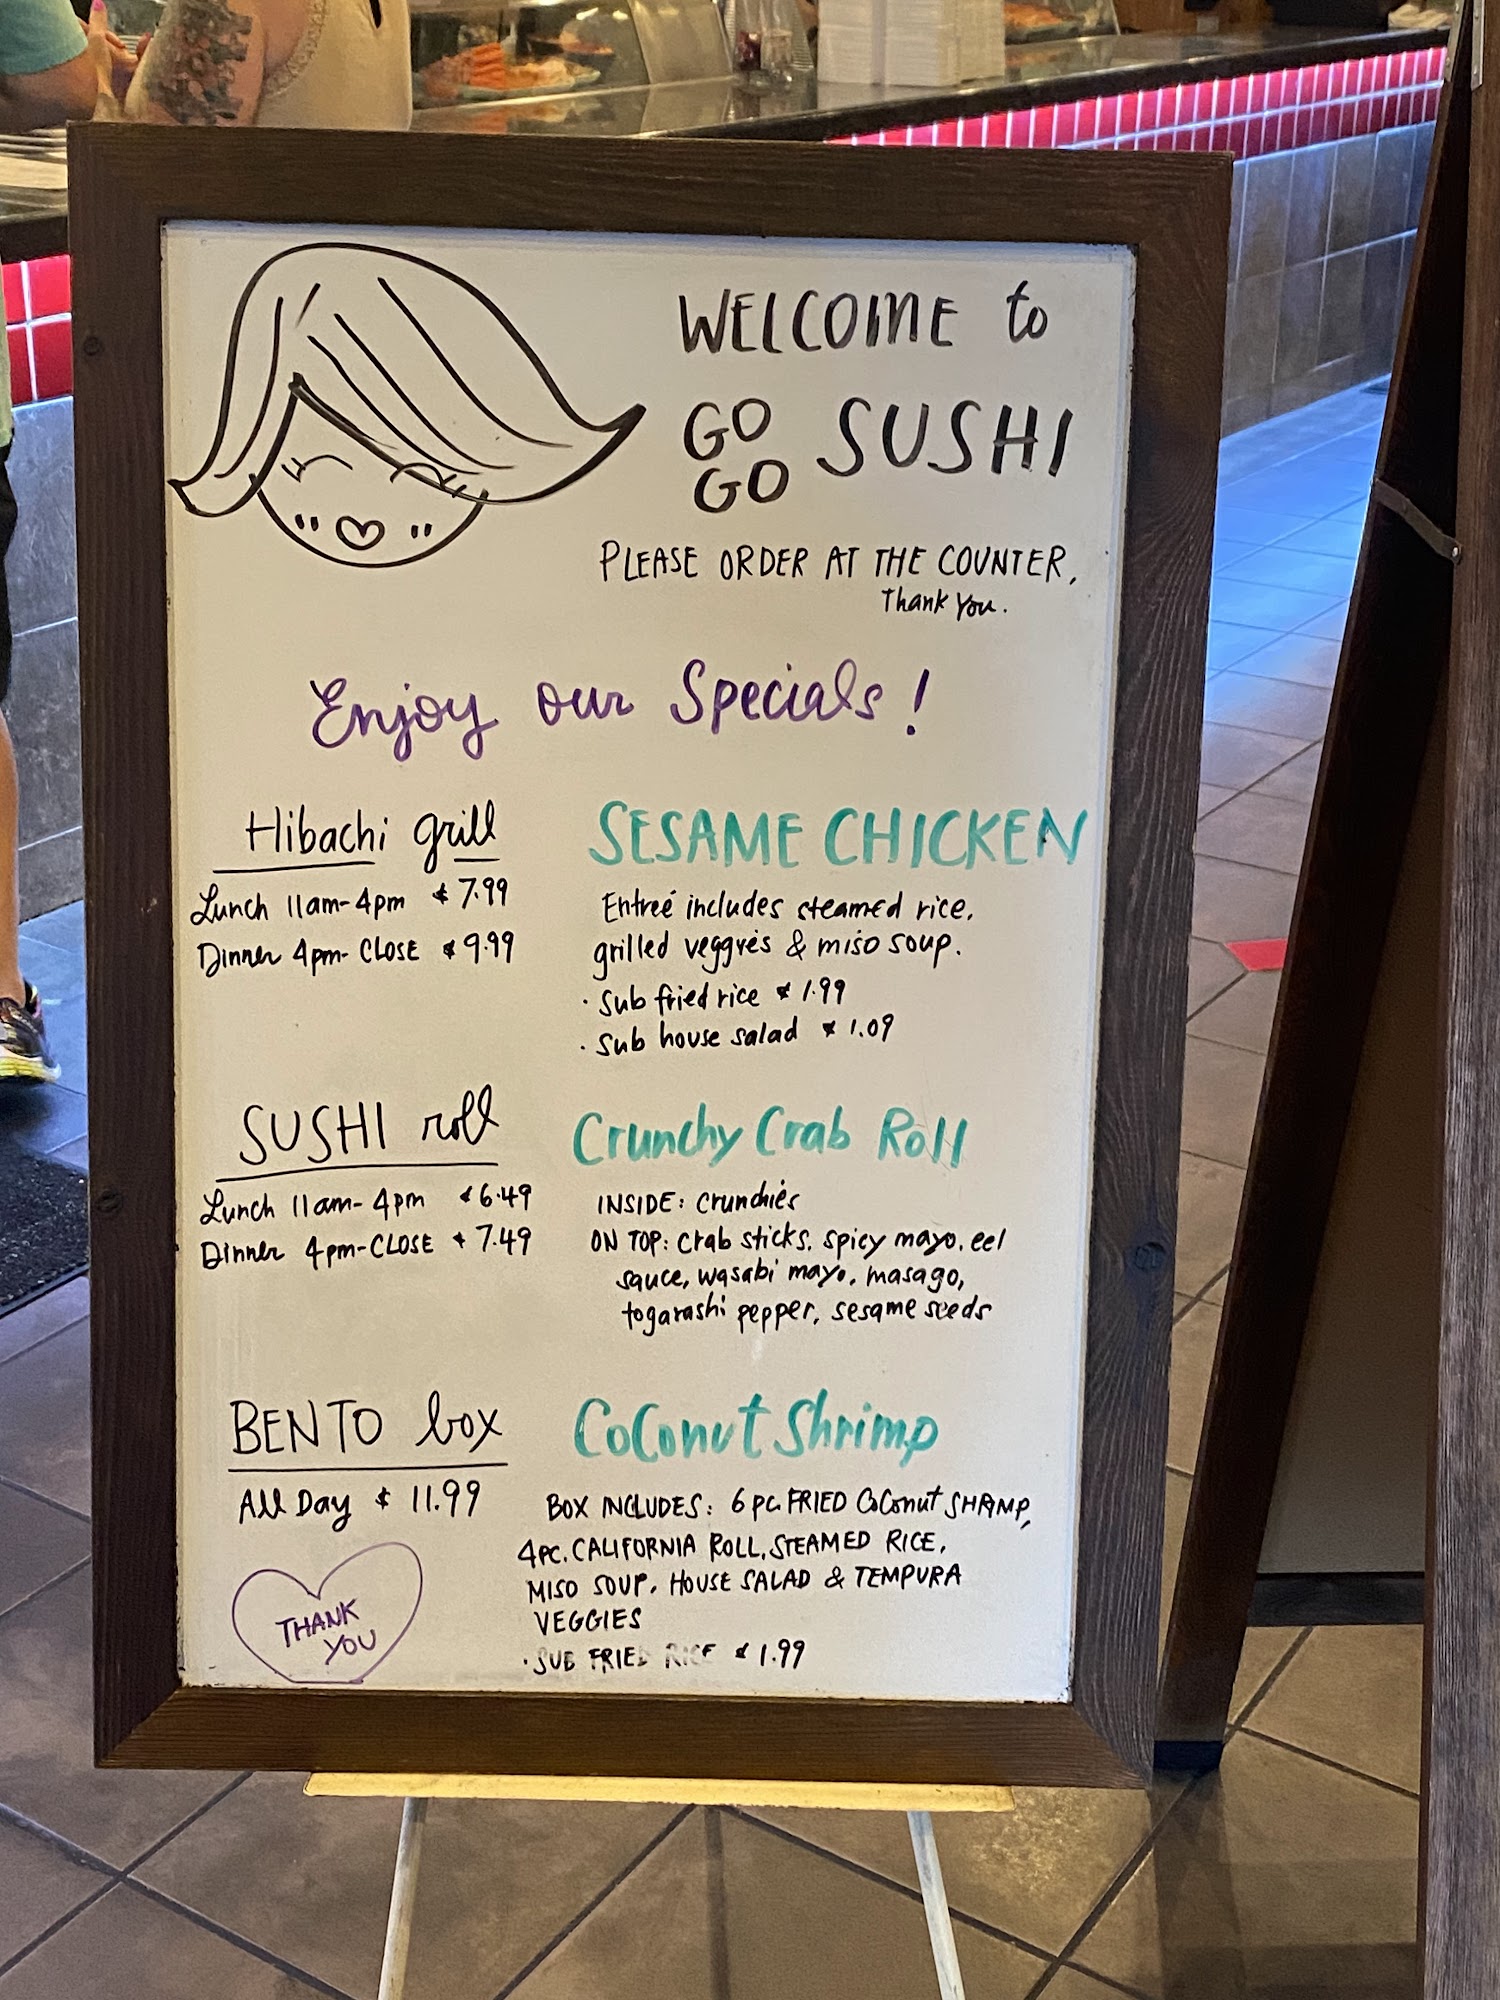 WELCOME to
GO GO SUSHI
PLEASE ORDER AT THE COUNTER,
Thank you.
Enjoy our Specials!
Hibachi grill
Lunch 11am-4pm $7.99
Dinner 4pm-CLOSE $9.99
SESAME CHICKEN
Entreé includes steamed rice,
grilled veggies & miso soup.
· Sub fried rice $1.99
· Sub house salad $1.09
SUSHI roll
Lunch 11am-4pm $6.49
Dinner 4pm-CLOSE $7.49
Crunchy Crab Roll
INSIDE: crunchies
ON TOP: crab sticks, spicy mayo, eel
sauce, wasabi mayo, masago,
togarashi pepper, sesame seeds
BENTO box
All Day $11.99
Coconut Shrimp
BOX INCLUDES: 6 pc. FRIED Coconut SHRIMP,
4PC. CALIFORNIA ROLL, STEAMED RICE,
MISO SOUP, HOUSE SALAD & TEMPURA
VEGGIES
· SUB FRIED RICE $1.99
THANK
YOU